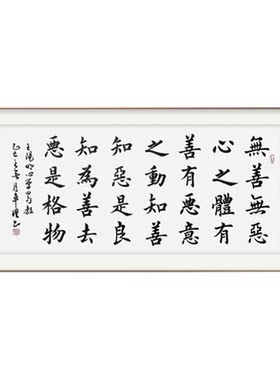 無善無惡
心之體有
善有惡意
之動知善
知惡是良
知為善去
惡是格物
王陽明心學四教